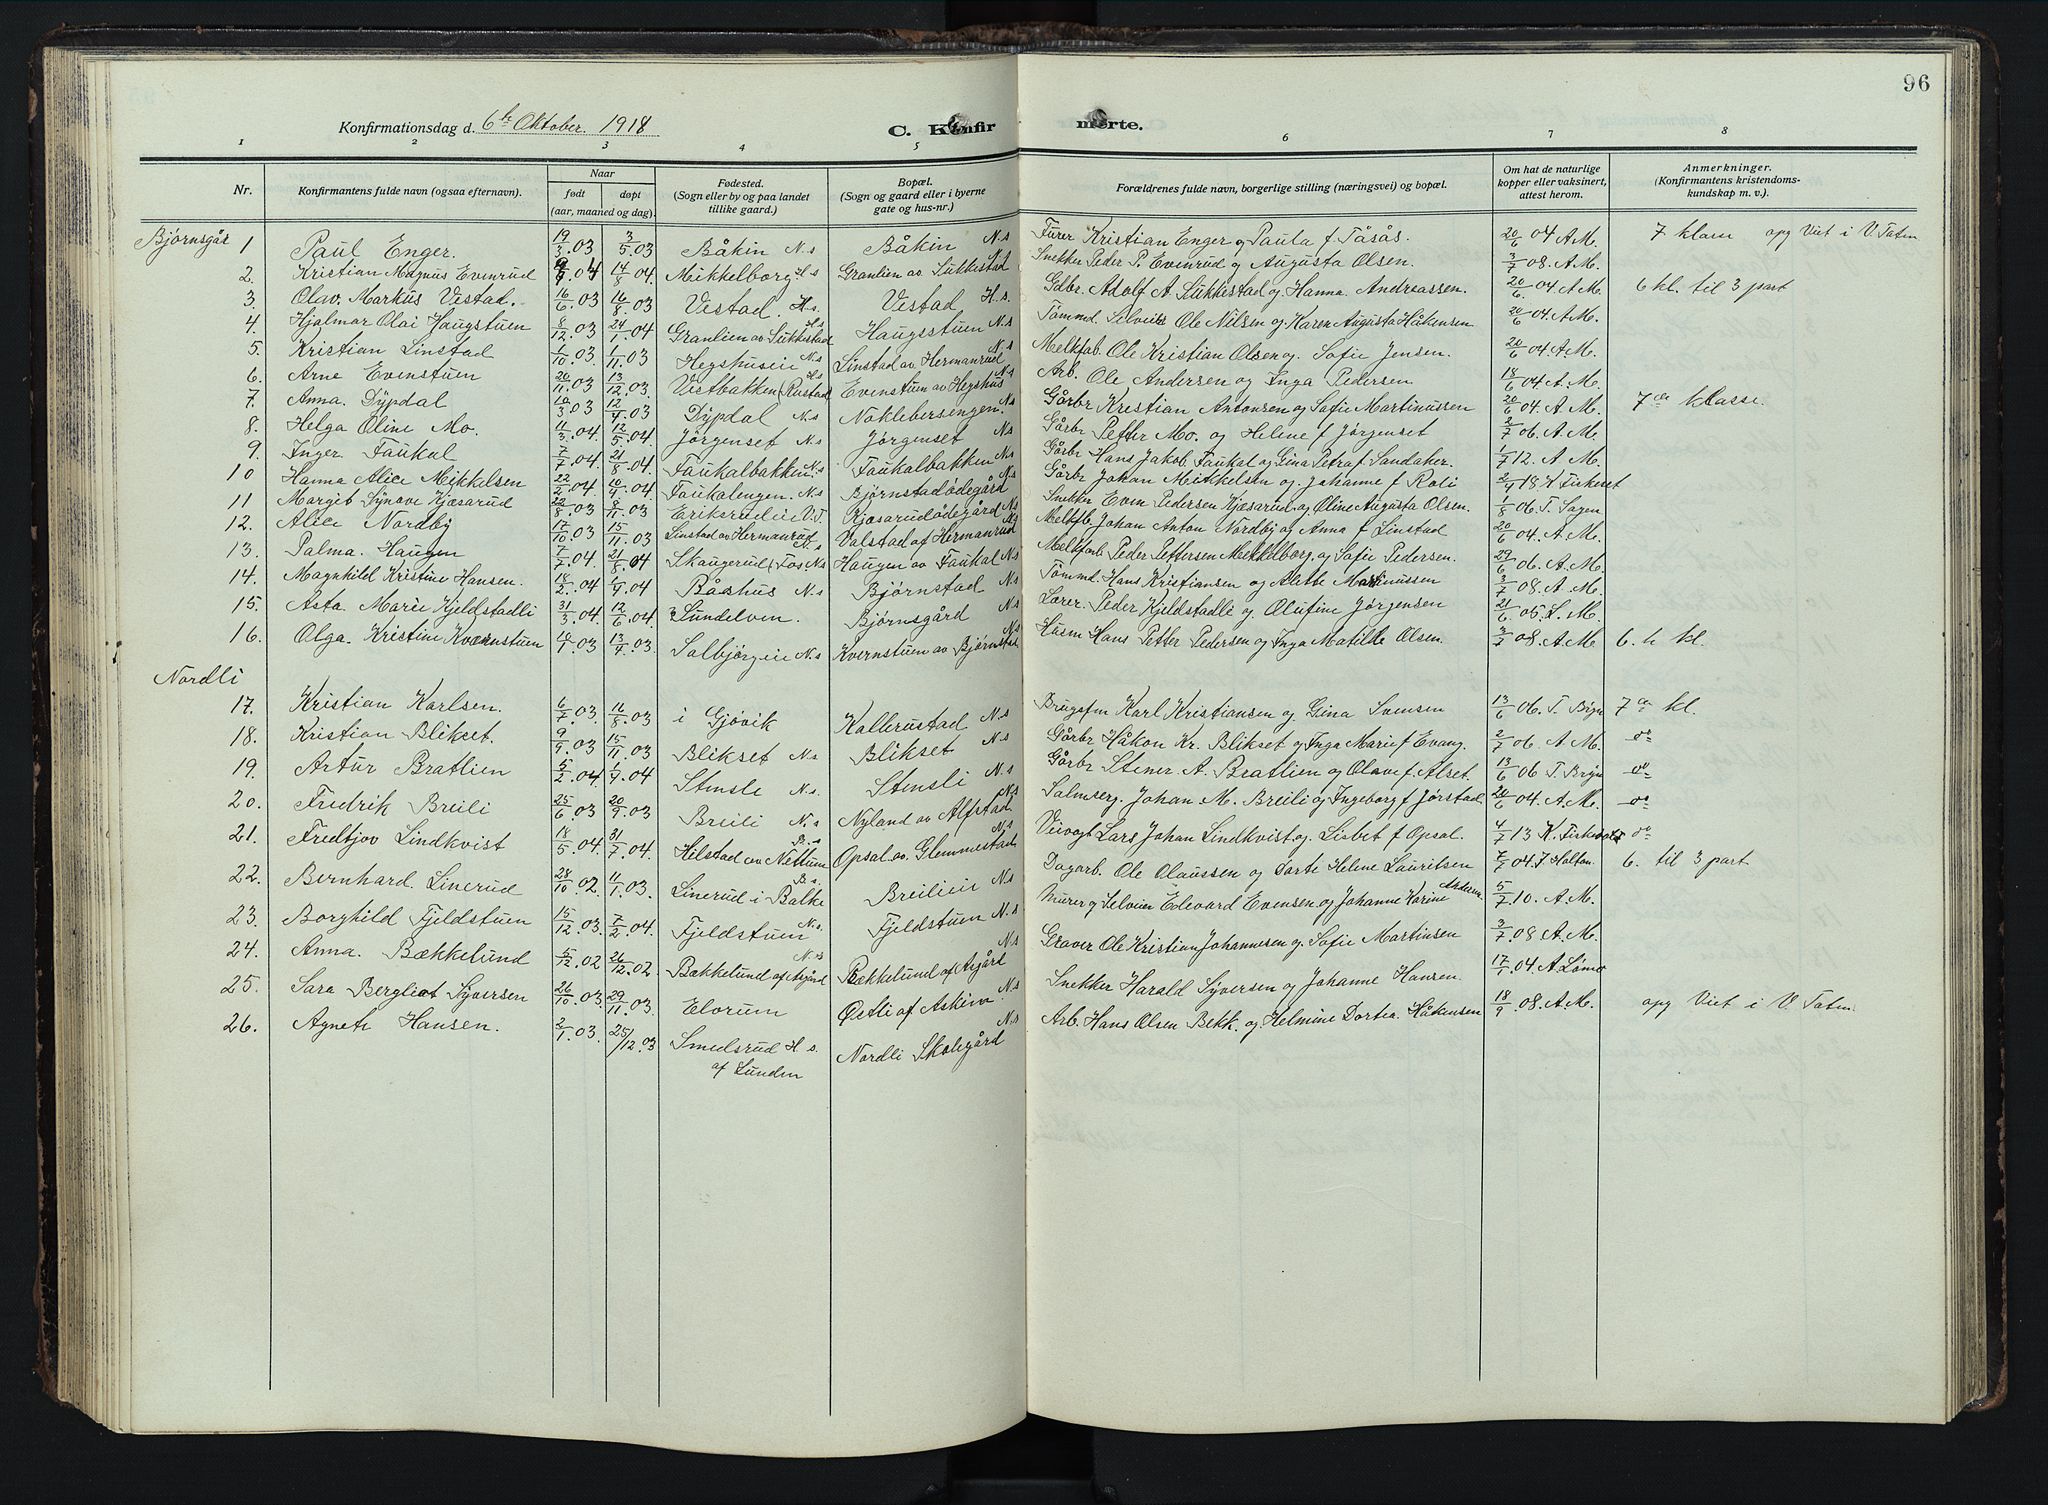 96
Konfirmationsdag d. 6te Oktober. 1918
C. Konfirmerte.
1 2 3 4 5 6 7 8
Nr. Konfirmantens fulde navn (ogsaa efternavn). Naar født døpt (aar, maaned og dag). Fødested. (Sogn eller by og paa landet tillike gaard.) Bopæl. (Sogn og gaard eller i byerne gate og hus-nr.) Forældrenes fulde navn, borgerlige stilling (næringsvei) og bopæl. Om hat de naturlige kopper eller vaksinert, attest herom. Anmerkninger. (Konfirmantens kristendomskundskap m. v.).
Bjørnsgår
1 Paul Enger. 19/3 03 3/5 03 Båkin N.s Båkin N.s Furer Kristian Enger og Paula f. Tåsås. 20/6 04 A.M. 7 klasse opg Viet i V. Toten
2. Kristian Magnus Evenrud 04 14/8 04 Mikkelborg H.s Granlien av Sukkestad N.s Snekker Peder P. Evenrud og Augusta Olsen. 3/7 08. A.M.
3 Olav. Markus Vestad. 16/6 03 16/8 03 Vestad. H.s Vestad H.s. Gdbr. Adolf A. Sukkestad og Hanna Andreassen. 20/6 04 A.M. 6 kl. til 3 part
4. Hjalmar Olai Haugstuen 8/12 03 24/1 04 Granlien av Sukkestad H.s Haugsstuen N.s Tømmd. Selveier Ole Nilsen og Karen Augusta Håkensen 20/6 04. A.M.
5. Kristian Linstad 1/10 03 1/11 03 Hegshuseie N.s Linstad av Hermanrud N.s Melkfab. Ole Kristian Olsen og Sofie Jensen. 20/6 04 A.M.
6. Arne Evenstuen 20/11 03 13/12 03. Vestbakken (Rustad Evenstuen av Hegshus N.s Arb. Ole Andersen og Inga Pedersen 18/6 04 A.M.
7. Anna. Dypdal 10/3 03 12/4 03 Dypdal N.s Noklebersengen N.s Gårbr Kristian Antonsen og Sofie Martinussen 20/6 04. A.M. 7de klasse.
8. Helga Oline Mo. 11/3 04. 12/5 04 Jørgenset N.s Jørgenset N.s Gårbr Petter Mo og Helene f Jørgenset 2/7 06. A.M.
9. Inger Faukal 7/7 04. 21/8 04. Faukalbakken N.s Faukalbakken N.s Gårbr Hans Jakob. Faukal og Gina Petra f Sandaker. 1/7 12. A.M.
10 Hanna Alice Mikkelsen 22/2 04 10/4 04 Faukalengen. N.s Bjørnstadødegård Gårbr Johan Mikkelsen og Johanne f Roli 2/4 18 K Fiskeset
11 Margit Synøve Kjæsarud 22/8 03 03 Erikerudeie V.T. Kjæsarudødegård N.s Snekker Even Pedersen Kjæsarud og Oline Augusta Olsen. 1/8 06. T. Sogen
12. Alice Nordby 17/10 03 15/11 03 Linstad av Hermanrud Valstad af Hermanrud Melkfb. Johan Anton Nordby og Anna f Linstad 20/6 04. A.M.
13. Palma. Haugen 7/7 04. 21/8 04 Skaugerud (Fos N.s Haugen av Faukal N.s Melkfarb Peder Pettersen Mekkelborg og Sofie Pedersen. 29/6 06. A.M.
14. Magnhild Kristine Hansen. 18/2 04 1/4 04 Båshus N.s Bjørnstad N.s Tømmd Hans Kristiansen og Alette Martinussen 3/7 08. A.M.
15. Asta. Marie Kjeldstadli 31/3 04. 12/6 04 Sundelven. Bjørnsgård N.s Lærer. Peder Kjeldstadli og Olufine Jørgensen 21/6 05. L.M.
16. Olga. Kristine Kvernstuen 10/1 03 13/4 03. Salbjørgeie N.s Kvernstuen av Bjørnstad N.s Husm Hans Petter Pedersen og Inga Matilde Olsen. 3/7 08. A.M. 6. kl.
Nordli
17. Kristian Karlsen. 6/7 03. 16/8 03 i Gjøvik Kallerustad N.s Brugsfm Karl Kristiansen og Gina Svensen 13/6 06. T. Bryn 7de kl.
18. Kristian Blikset. 9/9 03 15/11 03 Blikset N.s Blikset N.s Gårbr Håkon Kr. Blikset og Inga Marie f Evang. 2/7 06. A.M. do
19. Artur Bratlien 5/2 04. 1/4 04 Stensle N.s Stensli N.s Gårbr Stener A. Bratlien og Olave f. Alset. 13/6 06 T. Bryn do
20. Fredrik Breili 25/6 03 20/9 03 Breili N.s Nyland av Alfstad N.s Salmserg. Johan M. Breili og Ingeborg f Jørstad 20/6 04. A.M. do
21. Fredtjov Lindkvist 18/5 04. 31/7 04. Hilstad av Nettum B.s Opsal av. Glemmestad N.s Veivogt Lars Johan Lindkvist og Lisbet f Opsal. 4/7 13 K. Fiskvold do
22. Bernhard. Linerud 28/10 02. 11/1 03. Linerud i Balke B.s. Breilieie N.s Dagarb. Ole Olaussen og Dorte Helene Lauritsen 7/7 04. J Holton 6. til 3 part
23. Borghild Fjeldstuen 15/12 03. 7/2 04. Fjeldstuen N.s. Fjeldstuen N.s Murer og Selveier Edevard Evensen og Johanne Karine Andersen 5/7 10. A.M.
24. Anna. Bækkelund 5/12 02 26/12 02 Bækkelund af Asgård N.s Bækkelund af Asgård N.s Graver Ole Kristian Johannesen og Sofie Martinsen 3/7 08 A.M.
25. Sara Bergliot Syversen 26/10 03 29/11 03. Elorum Østli af Askim N.s Snekker Harald Syversen og Johanne Hansen. 17/1 04. A Lømo
26. Agnete Hansen. 2/1 03. 25/12 03 Smedsrud H.s. af Lunden Nordli Skolegård N.s Arb. Hans Olsen Bekk. og Helmine Dortea Håkensen 18/9 08. A.M. opg Viet i V. Toten